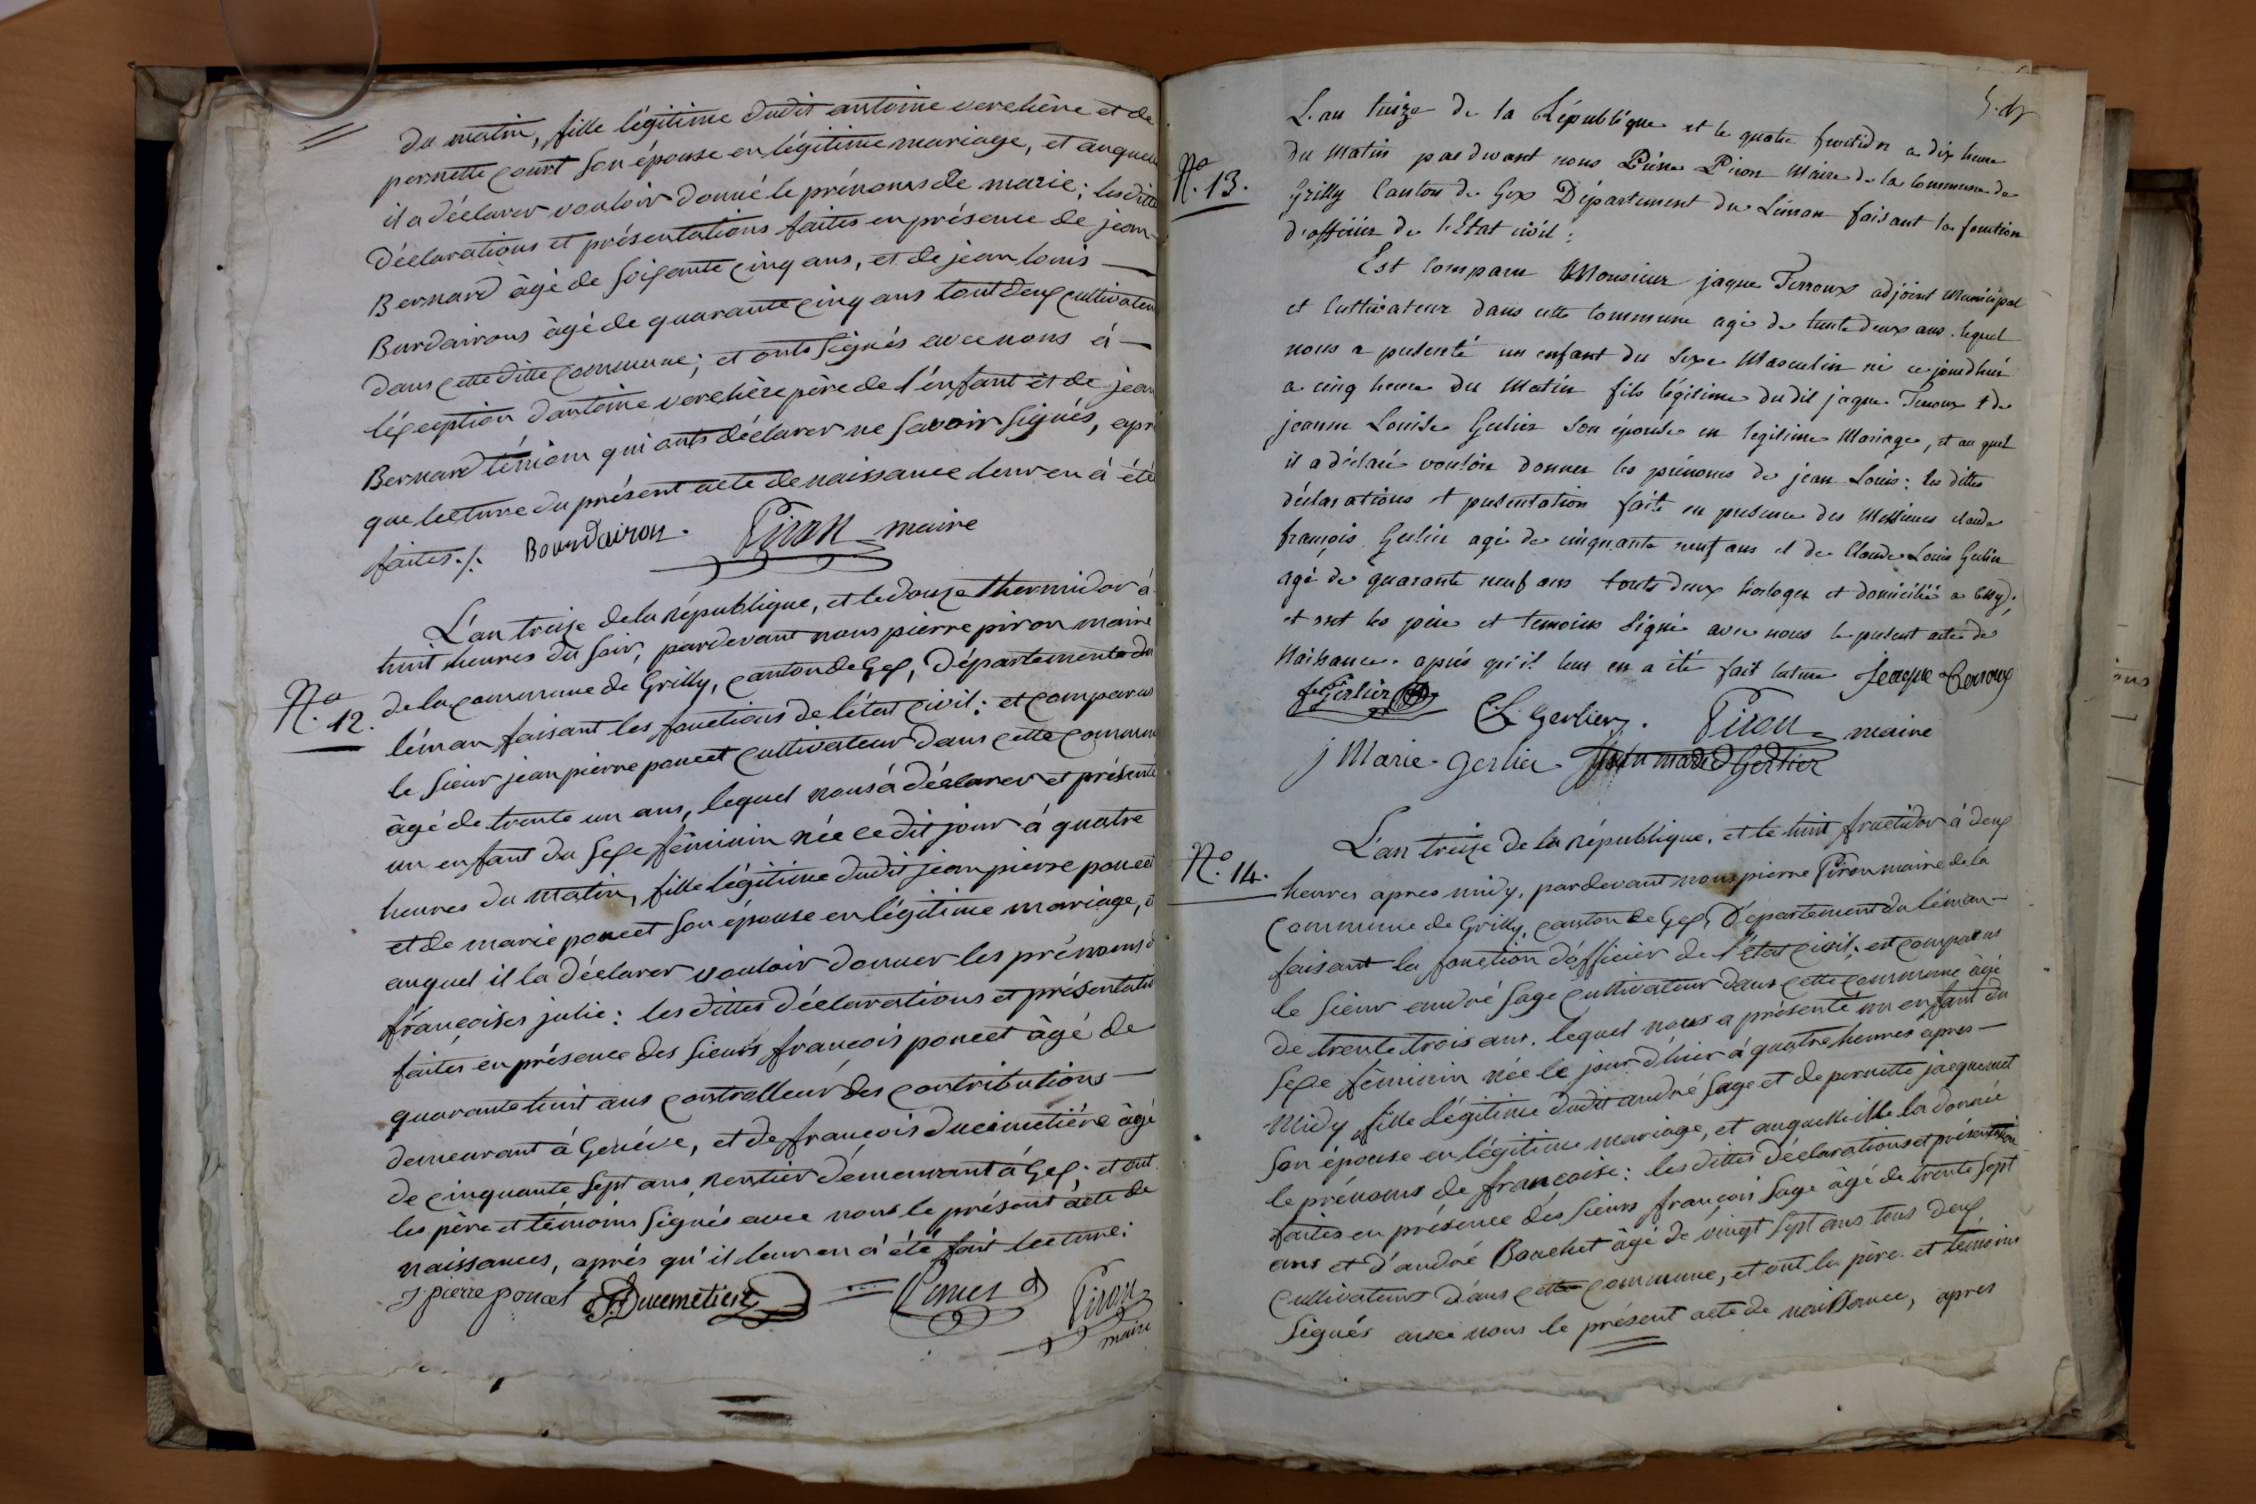 du matin, fille légitime dudit antoine verchère et de
pernette court son épouse en légitime mariage, et auquel
il a déclarer vouloir donné le prénoms de marie; les dittes
déclarations et présentations faites en présence de jean
Bernard âgé de soixante cinq ans, et de jean louis
Burdairons âgé de quarante cinq ans tout deux cultivateur
dans cette ditte commune; et onts signés avec nous à
léxception dantoine verchère père de l'énfant et de jean
Bernard témion qui onts déclarer ne savoir signés, apr
que lecture du présent acte de naissance leur en à été
faites./. Bourdairon. Piron maire
N.o 12.
L'an treize de la république, et le douze thermidor à
huit heures du soir, pardevant nous pierre piron maire
de la commune de Grilly, canton de Gex, Département du
léman faisant les fonctions de l'état civil; et comparus
le sieur jean pierre poncet cultivateur dans cette commune
âgé de trente un ans, lequel nous à déclarer et présenté
un enfant du sexe féminin née ce dit jour à quatre
heures du matin, fille légitime dudit jean pierre poncet
et de marie poncet son épouse en légitime mariage, et
auquel il la déclarer vouloir donner les prénoms d
françoises julie: les dittes déclarations et présentatio
faites en présence des sieurs françois poncet âgé de
quarante huit ans controlleur des contributions
demeurant à Genéve, et de françois ducimetiére âgé
de cinquante sept ans, rentier démeurant à Gex; et ont
les père et témoins signés avec nous le présent acte de
naissances, aprés qu'il leur en à été fait lecture:
J pierre poncet Ducemetiere Poncet Piron
maire
N.o 13.
L'an treize de la République et le quatre fructidor a dix heure
du matin pardevant nous Piére Piron Maire de la commune de
Grilly Canton de Gex Département du Léman faisant la fonction
d'officier de l'Etat civil:
Est Comparu Monsieur jaque Terroux adjoint Municipal
et Cultivateur dans cette Commune agé de trente deux ans. lequel
nous a présenté un enfant du Sexe Masculin né ce jourdhui
a cinq heure du Matin fils légitime dudit jaque Terroux & de
jeanne Louise Gerlier son épouse en legitime Mariage, et au quel
il a déclaré vouloir donner les prénoms de jean Louis: les dittes
déclarations & présentation faite en presence des Messieurs claude
françois Gerlier agé de cinquante neuf ans et de Claude Louis Gerlier
agé de quarante neuf ans touts deux horloger et domicilié a
et ont les peire et temoins Signé avec nous le présent acte de
Naissance. aprés qu'il leur en a été fait lecture Jeaque Terroux
f Gerlier C. L. Gerlier. Piron maire
j Marie Gerlier Gerlier
N.o 14.
L'an treize de la république, et le huit fructidor à deux
heures apres midy, pardevant nous pierre Piron maire de la
commune de Grilly, canton de Gex, Département du léman
faisant la fonction d'officier de l'état civil; est comparus
le sieur andré sage cultivateur dans cette commune âgé
de trente trois ans. lequel nous a présenté un enfant du
sexe féminin née le jour d'hier à quatre heures apres
Midy fille légitime dudit andré sage et de pernette jacquemet
son épouse en légitime mariage, et auquelle ille la donnée
le prénoms de françoise: les dittes déclarations et présentation
faites en présence dés sieurs françois sage âgé de trente sept
ans et d'andré Bouchet âgé de vingt sept ans tous deux
cultivateurs dans cette commune, et ont la père et témoins
signés avec nous le présent acte de naissance, apres